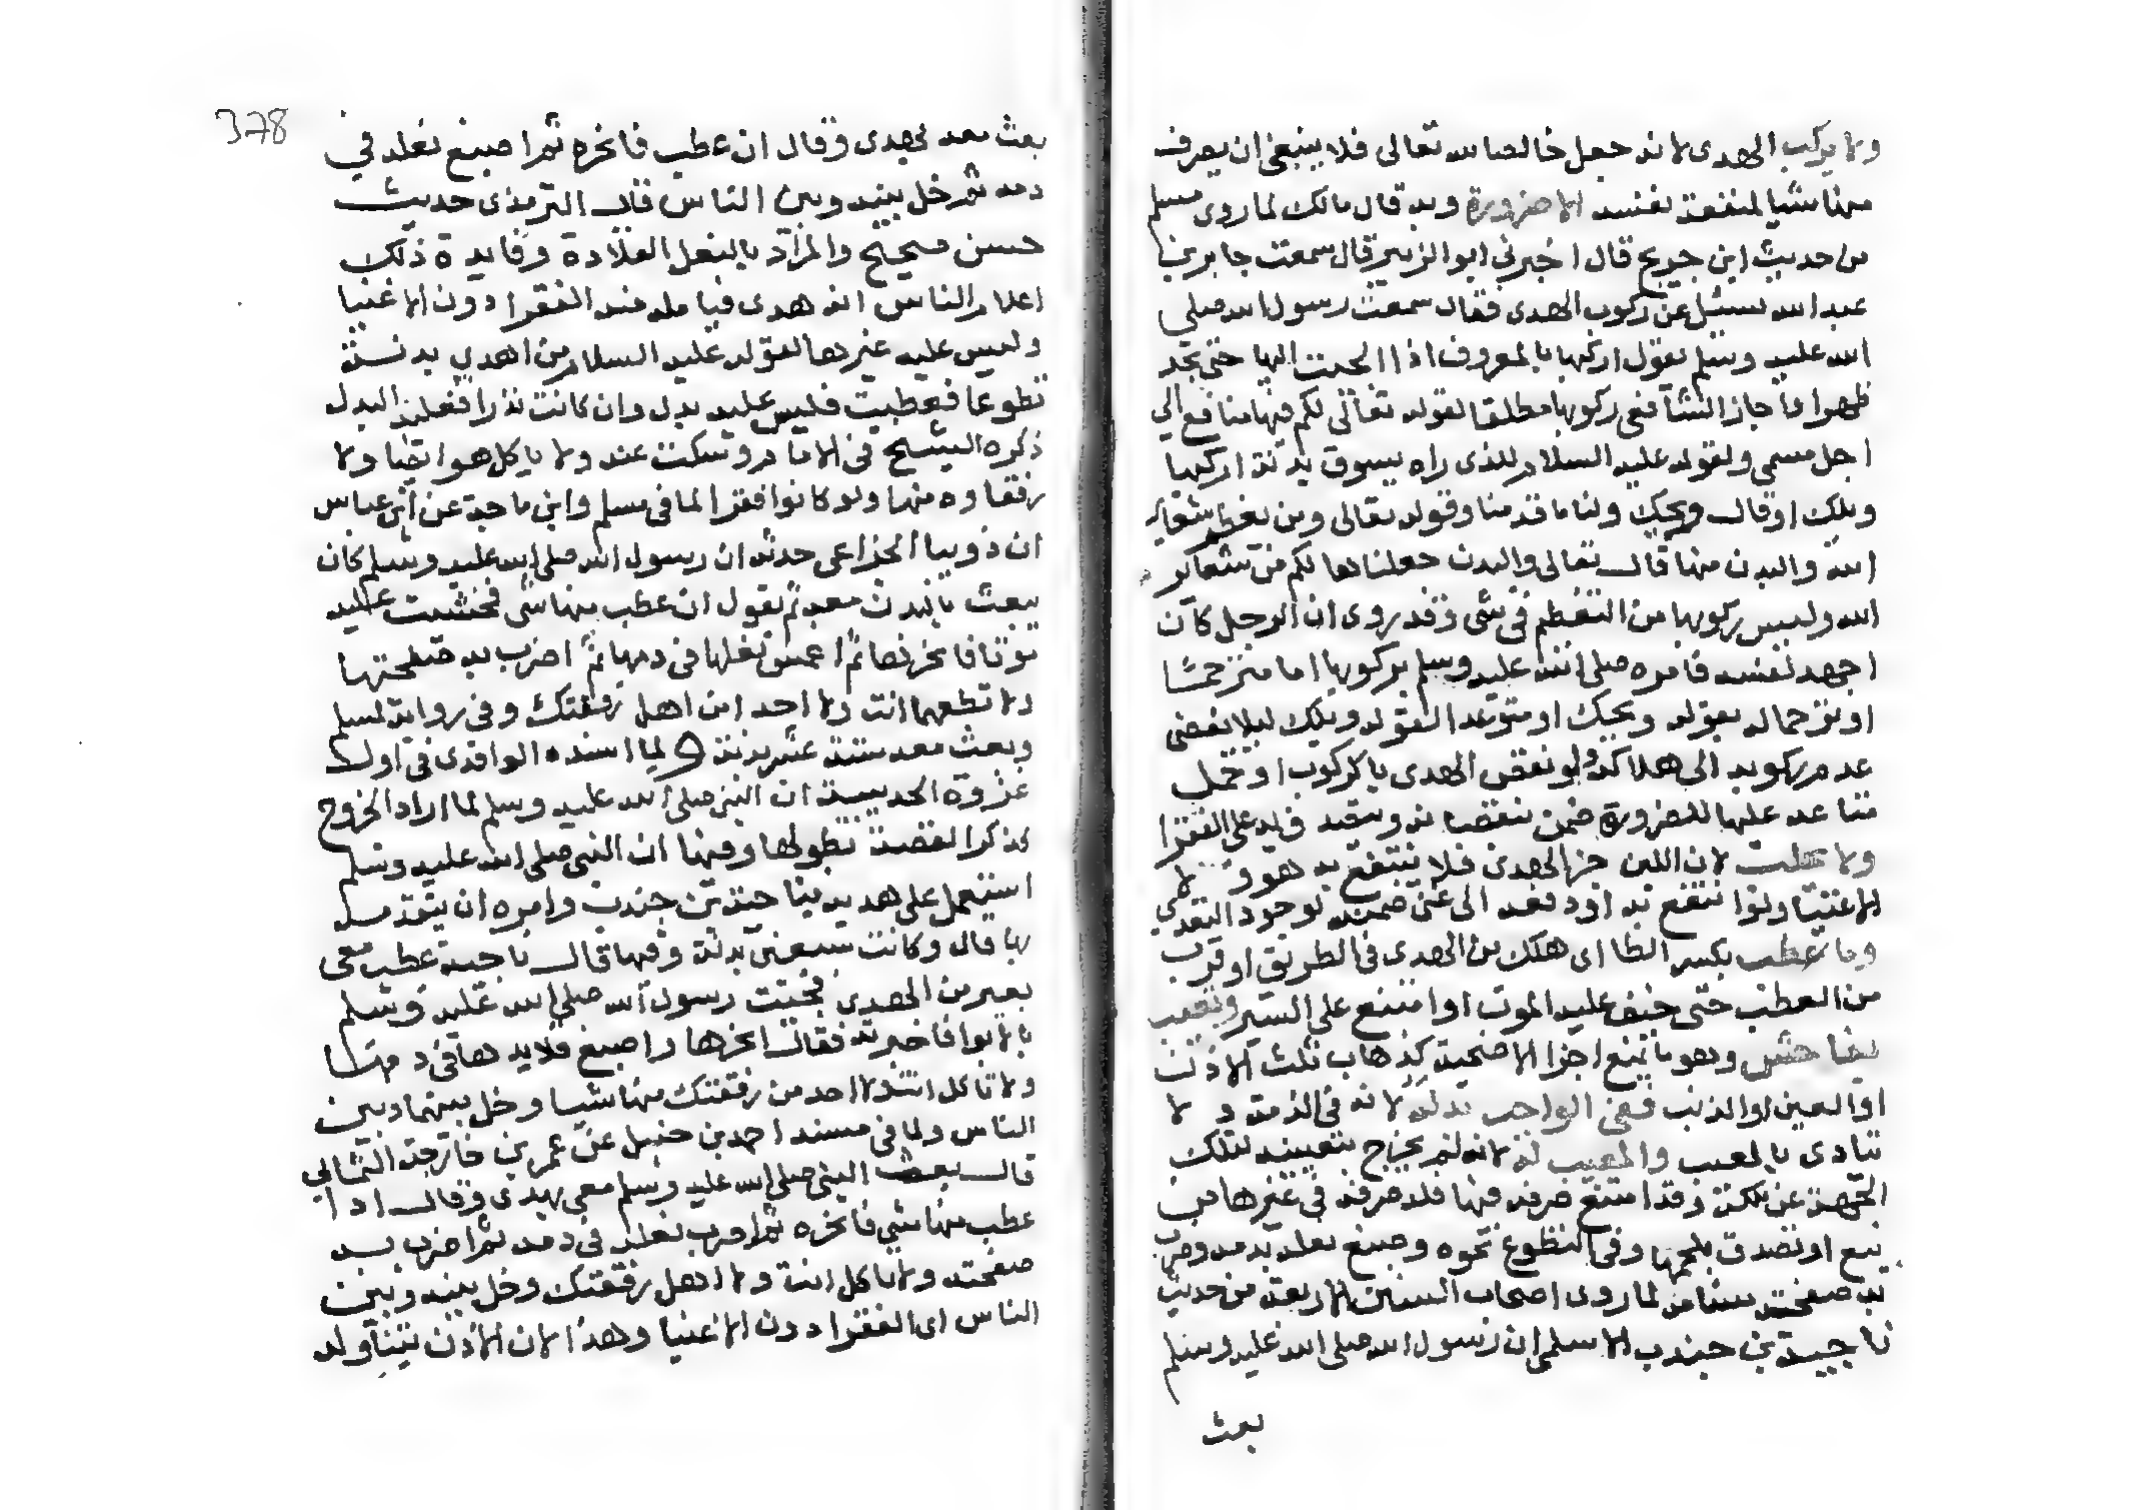 ولا يركب الهدى لانه جعل خالصا لله تعالى فلا ينبغى ان يصرف
منها شيا لمنفعة نفسه الا ضرورة وبه قال مالك لما روى مسلم
من حديث ابن جريج قال اخبرنى ابو الزبير قال سمعت جابر بن
عبد الله سئل عن ركوب الهدى فقال سمعت رسول الله صلى
الله عليه وسلم يقول اركبها بالمعروف اذا الجئت اليها حتى تجد
ظهرا واجاز الشافعى ركوبها مطلقا لقوله تعالى لكم فيها منافع الى
اجل مسمى ولقوله عليه السلام للذى راه يسوق بدنة اركبها
ويلك او قال ويحك ولنا ما قدمنا وقوله تعالى ومن يعظم شعاير
الله والبدن منها قال تعالى والبدن جعلناها لكم من شعاير
الله وليس ركوبها من التعظيم فى شى وقد روى ان الرجل كان
اجهد نفسه فامره صلى الله عليه وسلم بركوبها اما مترحما
او ترحما له بقوله ويحك او متوعدا لقوله ويلك ليلا يفضى
عدم ركوبه الى هلاكه ولو نقص الهدى بالركوب او حمل
متاعه عليها للضرورة ضمن نقصانه وتصدق به على الفقرا
ولا يحلب لان اللبن جز الهدى فلا ينتفع به هو و
الاغنيا ولو انتفع به او دفعه الى غنى ضمنه لوجود التعدى
وما عطب بكسر الطا اى هلك من الهدى فى الطريق او قرب
من العطب حتى خيف عليه الموت او امتنع على السير وتعيب
بفاحش وهو ما يمنع اجزا الاضحية كذهاب ثلث الاذن
او العين او الذنب ففى الواجب بدله لانه فى الذمة ولا
يتادى بالمعيب والمعيب له لانه لم يخرج بتعيينه لتلك
الجهة عن ملكه وقد امتنع صرفه فيها فله صرفه فى غيرها من
بيع او تصدق بلحمها وفى التطوع نحره وصبغ نعله بدمه وضرب
به صفحته سنامه لما روى اصحاب السنن الاربعة من حديث
ناجية بن جندب الاسلمى ان رسول الله صلى الله عليه وسلم
بعث
378
بعث معه بهدى وقال ان عطب فانحره ثم اصبغ نعله فى
دمه ثم خل بينه وبين الناس قال الترمذى حديث
حسن صحيح والمراد بالنعل القلادة وفايدة ذلك
اعلام الناس انه هدى فياكله منه الفقرا دون الاغنيا
وليس عليه غيرها لقوله عليه السلام من اهدى بدنة
تطوعا فعطبت فليس عليه بدل وان كانت نذرا فعليه البدل
ذكره الشيخ فى الامام وسكت عنه ولا ياكل هو ايضا ولا
رفقاوه منها ولو كانوا فقرا لما فى مسلم وابن ماجة عن ابن عباس
ان ذويبا الخزاعى حدثه ان رسول الله صلى الله عليه وسلم كان
يبعث بالبدن معه ثم يقول ان عطب منها شى فخشيت عليه
موتا فانحرها ثم اغمس نعلها فى دمها ثم اضرب به صفحتها
ولا تطعمها انت ولا احد من اهل رفقتك وفى رواية لمسلم
وبعث معه ستة عشر بدنة ولما اسنده الواقدى فى اول
غزوة الحديبية ان النبى صلى الله عليه وسلم لما اراد الخروج
فذكر القصة بطولها وفيها ان النبى صلى الله عليه وسلم
استعمل على هديه ناجية بن جندب وامره ان يتقدمه
بها قال وكانت سبعين بدنة وفيها قال ناجية عطب معى
بعير من الهدى فجئت رسول الله صلى الله عليه وسلم
بالابوا فاخبرته فقال انحرها واصبغ قلايدها فى دمها
ولا تاكل انت ولا احد من رفقتك منها شيا وخل بينها وبين
الناس ولما فى مسند احمد بن حنبل عن عمر بن خارجة الثمالى
قال بعث النبى صلى الله عليه وسلم معى بهدى وقال اذا
عطب منها شى فانحره ثم اضرب نعله فى دمه ثم اضرب به
صفحته ولا تاكل انت ولا اهل رفقتك وخل بينه وبين
الناس اى الفقرا دون الاغنيا وهذا لان الاذن بتناوله